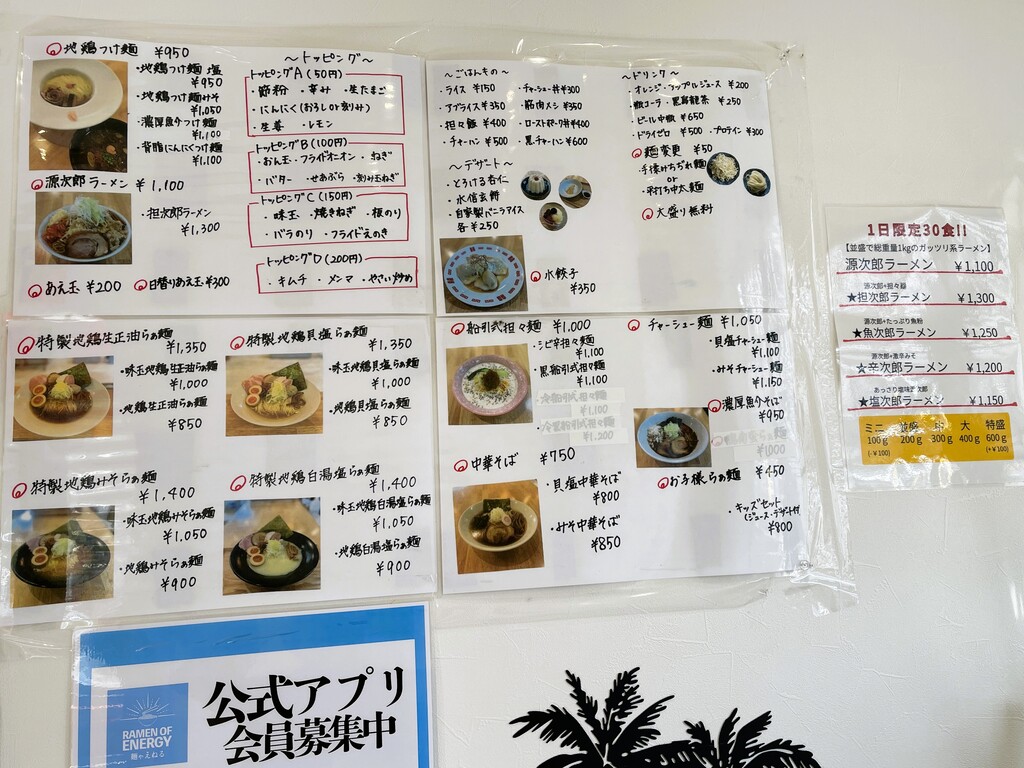 地鶏つけ麺 ¥950
・地鶏つけ麺 塩
¥950
・地鶏つけ麺みそ
¥1,050
・濃厚魚介つけ麺
¥1,100
・背脂にんにくつけ麺
¥1,100
源次郎ラーメン ¥1,100
・担次郎ラーメン
¥1,300
あえ玉 ¥200
日替りあえ玉 ¥300
～トッピング～
トッピングA(50円)
・節粉 ・辛み ・生たまご
・にんにく(おろしor刻み)
・生姜 ・レモン
トッピングB(100円)
・おん玉・フライドオニオン ・ねぎ
・バター ・せあぶら ・刻み玉ねぎ
トッピングC(150円)
・味玉 ・焼きねぎ ・板のり
・バラのり ・フライドえのき
トッピングD(200円)
・キムチ ・メンマ ・やさい炒め
～ごはんもの～
・ライス ¥150
・チャーシュー丼 ¥300
・ブブライス ¥350
・筋肉メシ ¥350
・担々飯 ¥400
・ローストポーク丼 ¥400
・チャーハン ¥500
・黒チャーハン ¥600
～デザート～
・とろける杏仁
・水信玄餅
・自家製バニラアイス
各 ¥250
水餃子
¥350
～ドリンク～
・オレンジ・アップルジュース ¥200
・瓶コーラ ・黒烏龍茶 ¥250
・ビール中瓶 ¥650
・ドライゼロ ¥500 ・プロテイン ¥300
麺変更 ¥50
・手揉みちぢれ麺
or
・平打ち中太麺
大盛り無料
特製地鶏生正油らぁ麺
¥1,350
・味玉地鶏生正油らぁ麺
¥1,000
・地鶏生正油らぁ麺
¥850
特製地鶏貝塩らぁ麺
¥1,350
・味玉地鶏貝塩らぁ麺
¥1,000
・地鶏貝塩らぁ麺
¥850
特製地鶏みそらぁ麺
¥1,400
・味玉地鶏みそらぁ麺
¥1,050
・地鶏みそらぁ麺
¥900
特製地鶏白湯塩らぁ麺
¥1,400
・味玉地鶏白湯塩らぁ麺
¥1,050
・地鶏白湯塩らぁ麺
¥900
船引式担々麺 ¥1,000
・シビ辛担々麺
¥1,100
・黒船引式担々麺
¥1,100
¥1,100
¥1,200
中華そば ¥750
・貝塩中華そば
¥800
・みそ中華そば
¥850
チャーシュー麺 ¥1,050
・貝塩チャーシュー麺
¥1,100
・みそチャーシュー麺
¥1,150
濃厚魚介そば
¥950
¥1,000
お子様らぁ麺 ¥450
・キッズセット
(ジュース・デザート付)
¥800
1日限定30食!!
【並盛で総重量1kgのガッツリ系ラーメン】
源次郎ラーメン ¥1,100
源次郎+担々器
★担次郎ラーメン ¥1,300
源次郎+たっぷり魚粉
★魚次郎ラーメン ¥1,250
源次郎+激辛みそ
★辛次郎ラーメン ¥1,200
あっさり塩味源次郎
★塩次郎ラーメン ¥1,150
ミニ 並盛 中 大 特盛
100g 200g 300g 400g 600g
(-¥100) (+¥100)
公式アプリ
会員募集中
RAMEN OF
ENERGY
麺やえねる